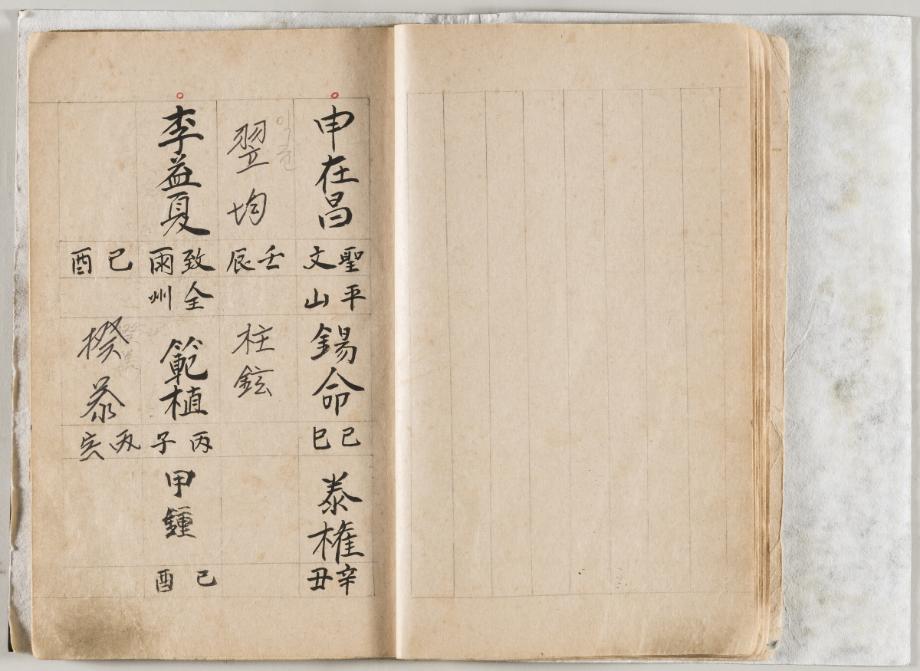 申在昌
聖文
平山
錫命
己巳
泰權
辛丑
翌均
壬辰
柱鉉
李益夏
致雨
全州
範植
丙子
甲鍾
己酉
己酉
楑泰
亥